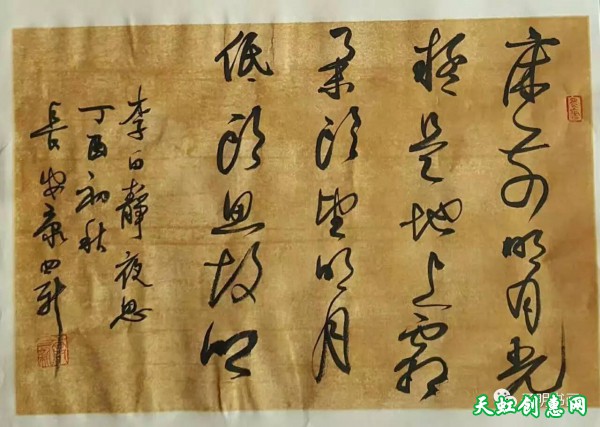 床前明月光
疑是地上霜
举头望明月
低头思故乡
李白靜夜思
丁酉初秋
長安康
天虹创惠网